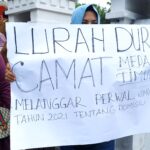 LURAH DUR
CAMAT MEDA
TIMU
MELANGGAR PERWAL
TAHUN 2021 TENTANG DOMISILI